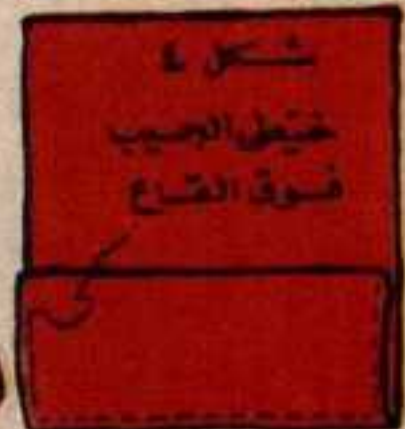 شكل ٤
خيّطي الجيب
فوق القاع